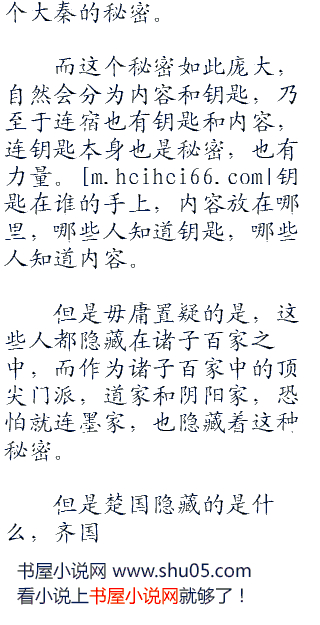 个大秦的秘密。
而这个秘密如此庞大，
自然会分为内容和钥匙，乃
至于连宿也有钥匙和内容，
连钥匙本身也是秘密，也有
力量。[m.hcihci66.com|钥
匙在谁的手上，内容放在哪
里，哪些人知道钥匙，哪些
人知道内容。
但是毋庸置疑的是，这
些人都隐藏在诸子百家之
中，而作为诸子百家中的顶
尖门派，道家和阴阳家，恐
怕就连墨家，也隐藏着这种
秘密。
但是楚国隐藏的是什
么，齐国
书屋小说网 www.shu05.com
看小说上书屋小说网就够了！